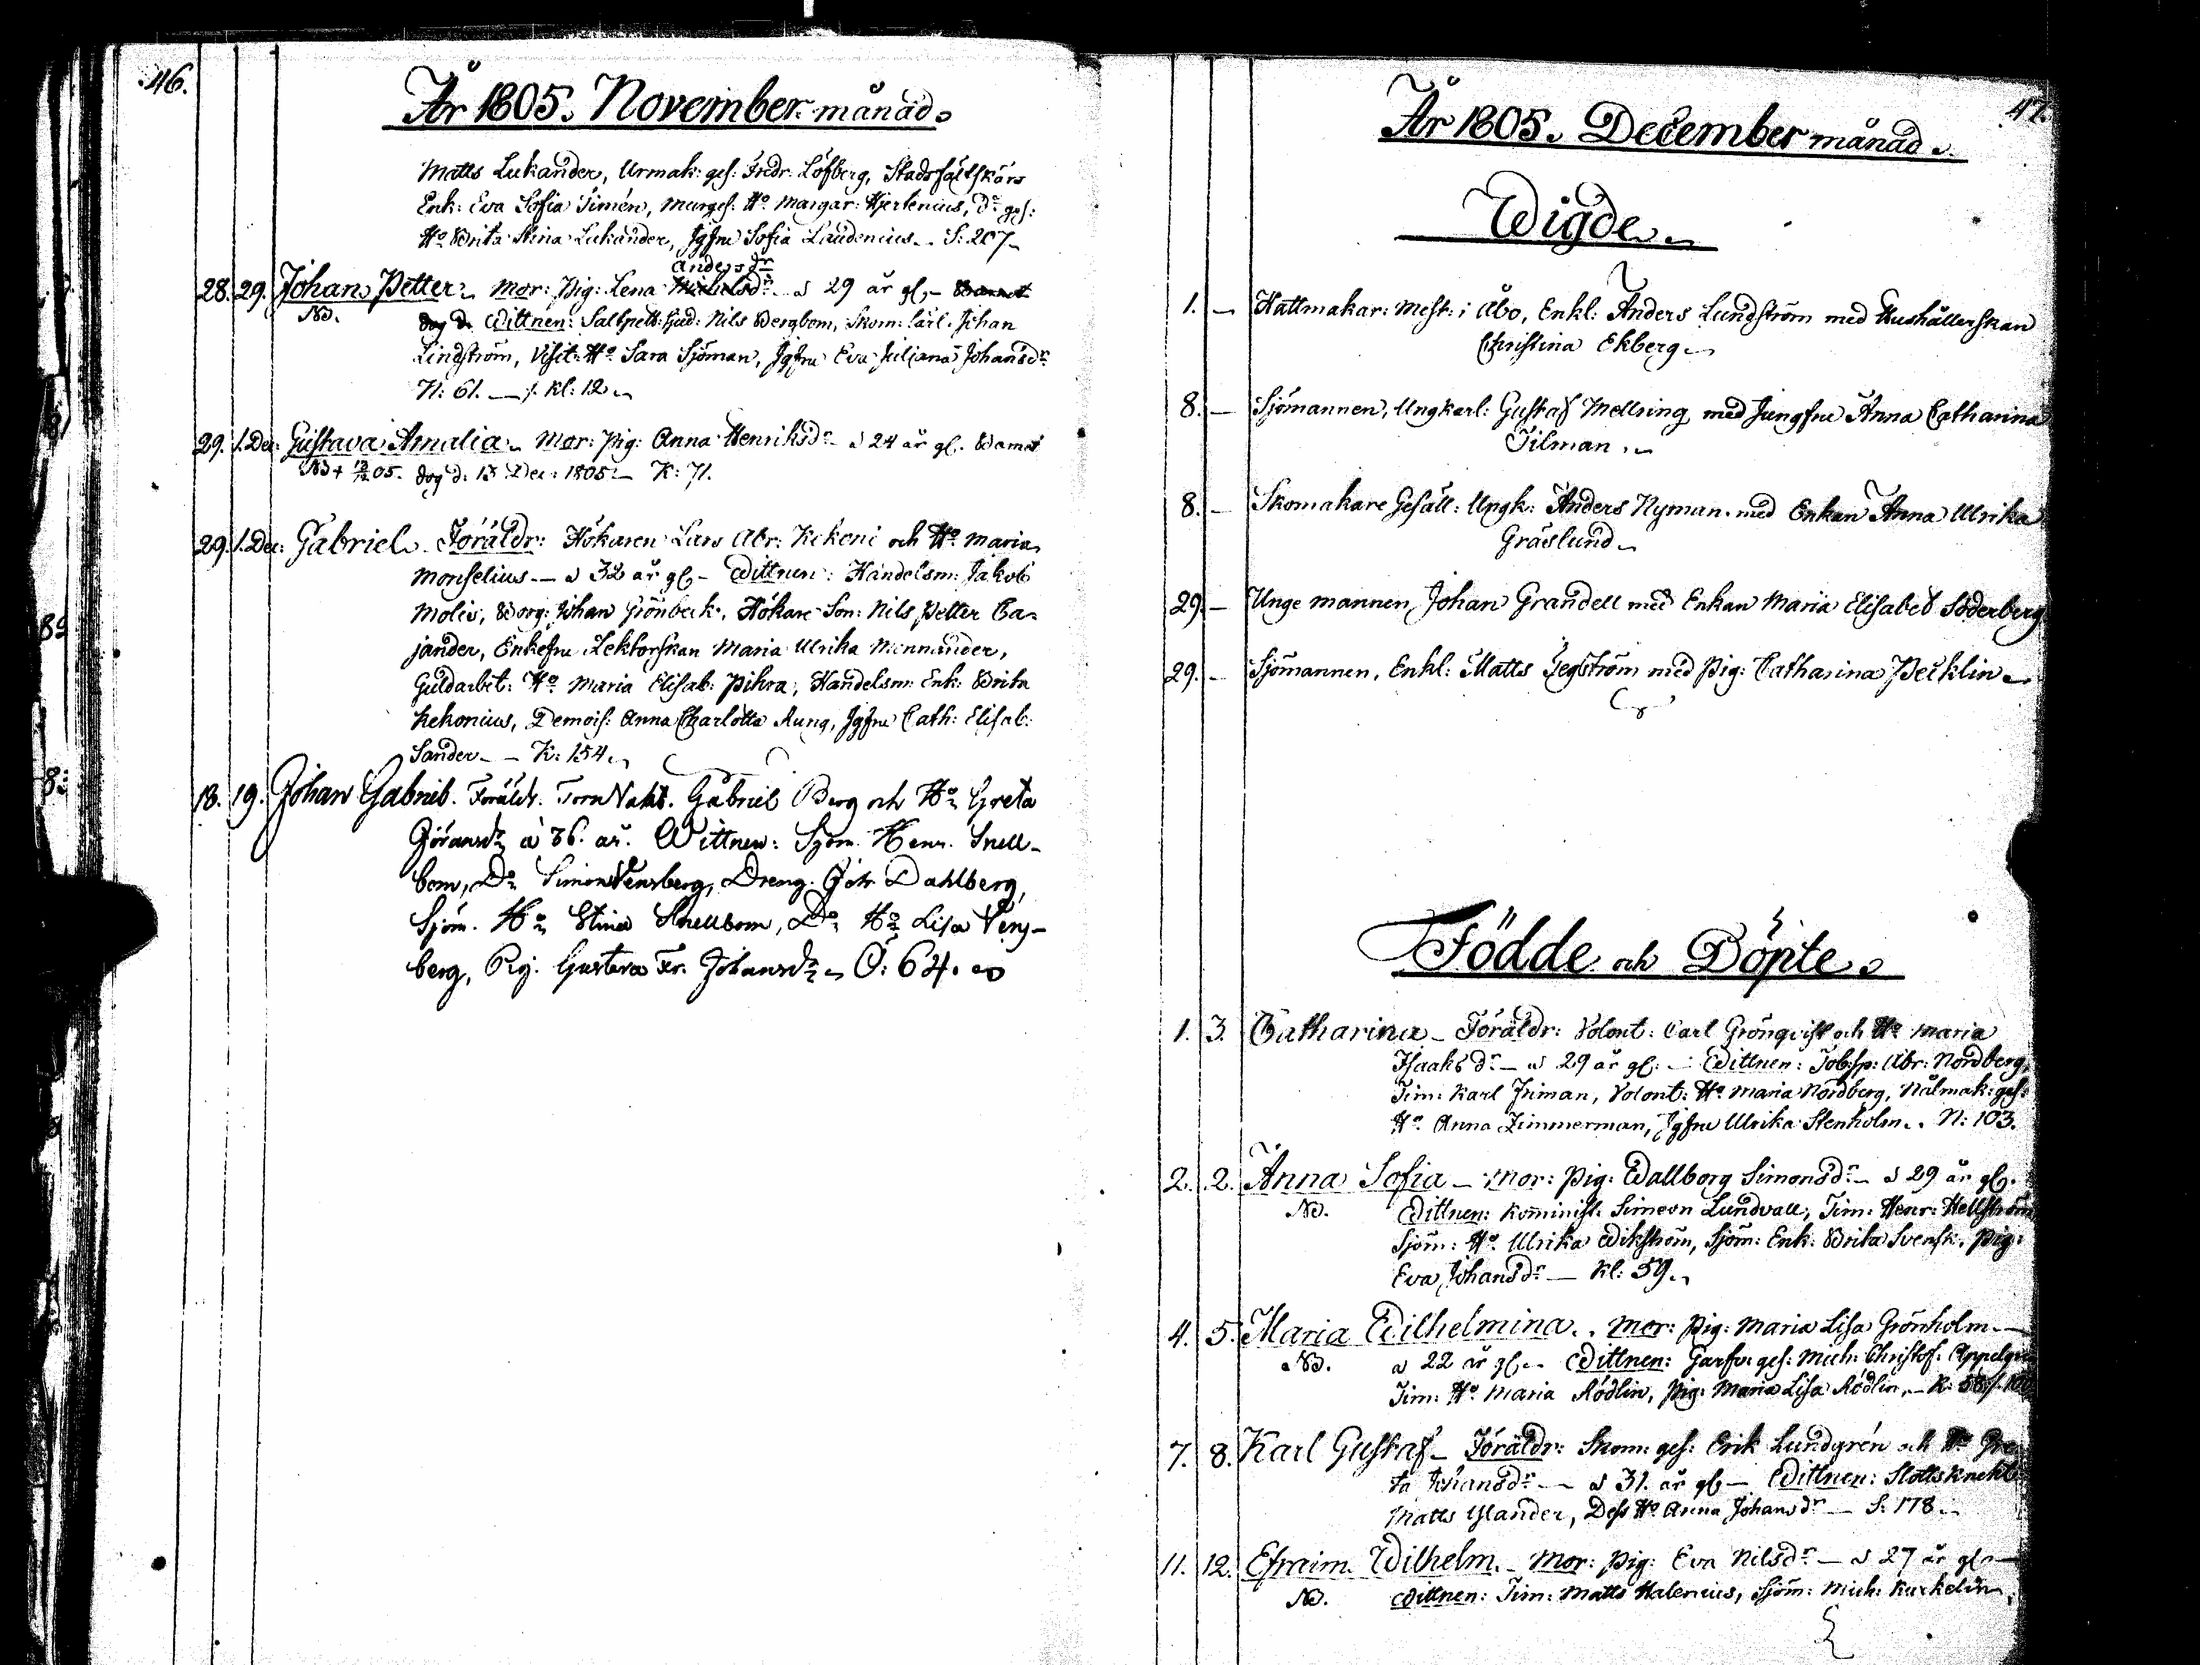 46.
År 1805. November månad.
Matts Lukander, Urmak: ges: Fredr: Löfberg, Stadsfältskärs
Enk: Eva Sofia Simén, Murges: Ho. Margar: Hjertenius, Do. ges:
Ho. Brita Stina Lukander, Jgfru Sofia Laudenius. S: 207.
Anders dr
28. 29. Johan Petter. Mor: Pig: Lena Michelsdr. a 29 år gl. Barnet
NB. dog d. Wittnen: Saltpett: Sjud: Nils Bergbom, Skom: lärl. Johan
Lindström, Visit: Ho. Sara Sjöman, Jgfru Eva Juliana Johansdr.
N: 61. — /. Kl: 12.
29. 1. Dec: Gustava Amalia. Mor: Pig: Anna Henriksdr. a 24 år gl. Barnet
NB + 13/12 05. dog d. 13 Dec: 1805. — K: 71.
29. 1. Dec: Gabriel. Föräldr: Hökaren Lars Abr: Kekoni och Ho. Maria
Monselius. — a 32 år gl. — Wittnen: Handelsm: Jakob
Molis, Borg: Johan Grönbeck, Hökare Son: Nils Petter Ca-
jander, Enkefru Lektorskan Maria Ulrika Mennander,
Guldarbet: Ho. Maria Elisab: Pihra, Handelsm: Enk: Brita
Kekonius, Demois: Anna Charlotta Aung, Jgfru Cath: Elisab:
Sander. — K: 154.
18. 19. Johan Gabriel. Föräldr. Torn Vakt. Gabriel Berg och Ho. Greta
Göransdr. a 36. år. Wittnen: Sjöm. Henr. Snell-
bom, Do. Simon Vensberg, Dreng. Dahlberg,
Sjöm. Ho. Stina Snellbom, Do. Ho. Lisa Vens-
berg, Pig. Gustava Fr. Johansdr. Ö: 64.
47.
År 1805. December månad.
Wigde.
1. — Hattmakar: Mest: i Åbo, Enkl: Anders Lundström med Hushållerskan
Christina Ekberg.
8. — Sjömannen, Ungkarl: Gustaf Mellring med Jungfru Anna Catharina
Tilman.
8. — Skomakare Gesäll: Ungk: Anders Nyman med Enkan Anna Ulrika
Gräslund.
29. — Unge mannen, Johan Grandell med Enkan Maria Elisabet Söderberg
29. — Sjömannen, Enkl: Matts Segström med Pig: Catharina Pecklin.
Födde och Döpte.
1. 3. Catharina — Föräldr: Volont: Carl Grönqvist och Ho. Maria
Isaksdr. — a 29 år gl. — Wittnen: Tobsp: Abr: Nordberg,
Tim: Karl Friman, Volont: Ho. Maria Nordberg, Nålmak: ges:
Ho. Anna Zimmerman, Jgfru Ulrika Stenholm. N: 103.
2. 2. Anna Sofia — Mor: Pig: Wallborg Simonsdr. — a 29 år gl.
NB. Wittnen: Kominist: Simeon Lundvall, Tim: Henr: Hellström
Sjöm: Ho. Ulrika Wikström, Sjöm: Enk: Brita Svensk, Pig:
Eva Johansdr. — Kl: 59.
4. 5. Maria Wilhelmina. Mor: Pig: Maria Lisa Grönholm. —
NB. a 22 år gl. Wittnen: Garfv: ges: Mich: Christof: Appelgre
Tim: Ho. Maria Rödlin, Pig: Maria Lisa Rödlin. — K: 58
7. 8. Karl Gustaf — Föräldr: Skom: ges: Erik Lundgrén och Ho. Gre-
ta Johansdr. — a 31. år gl. — Wittnen: Slottsknekt
Matts Ylander, Dess Ho. Anna Johansdr — S: 178.
11. 12. Efraim Wilhelm. — Mor: Pig: Eva Nilsdr. — a 27 år gl. —
NB. Wittnen: Tim: Matts Halenius, Sjöm: Mich: Kurkelin,